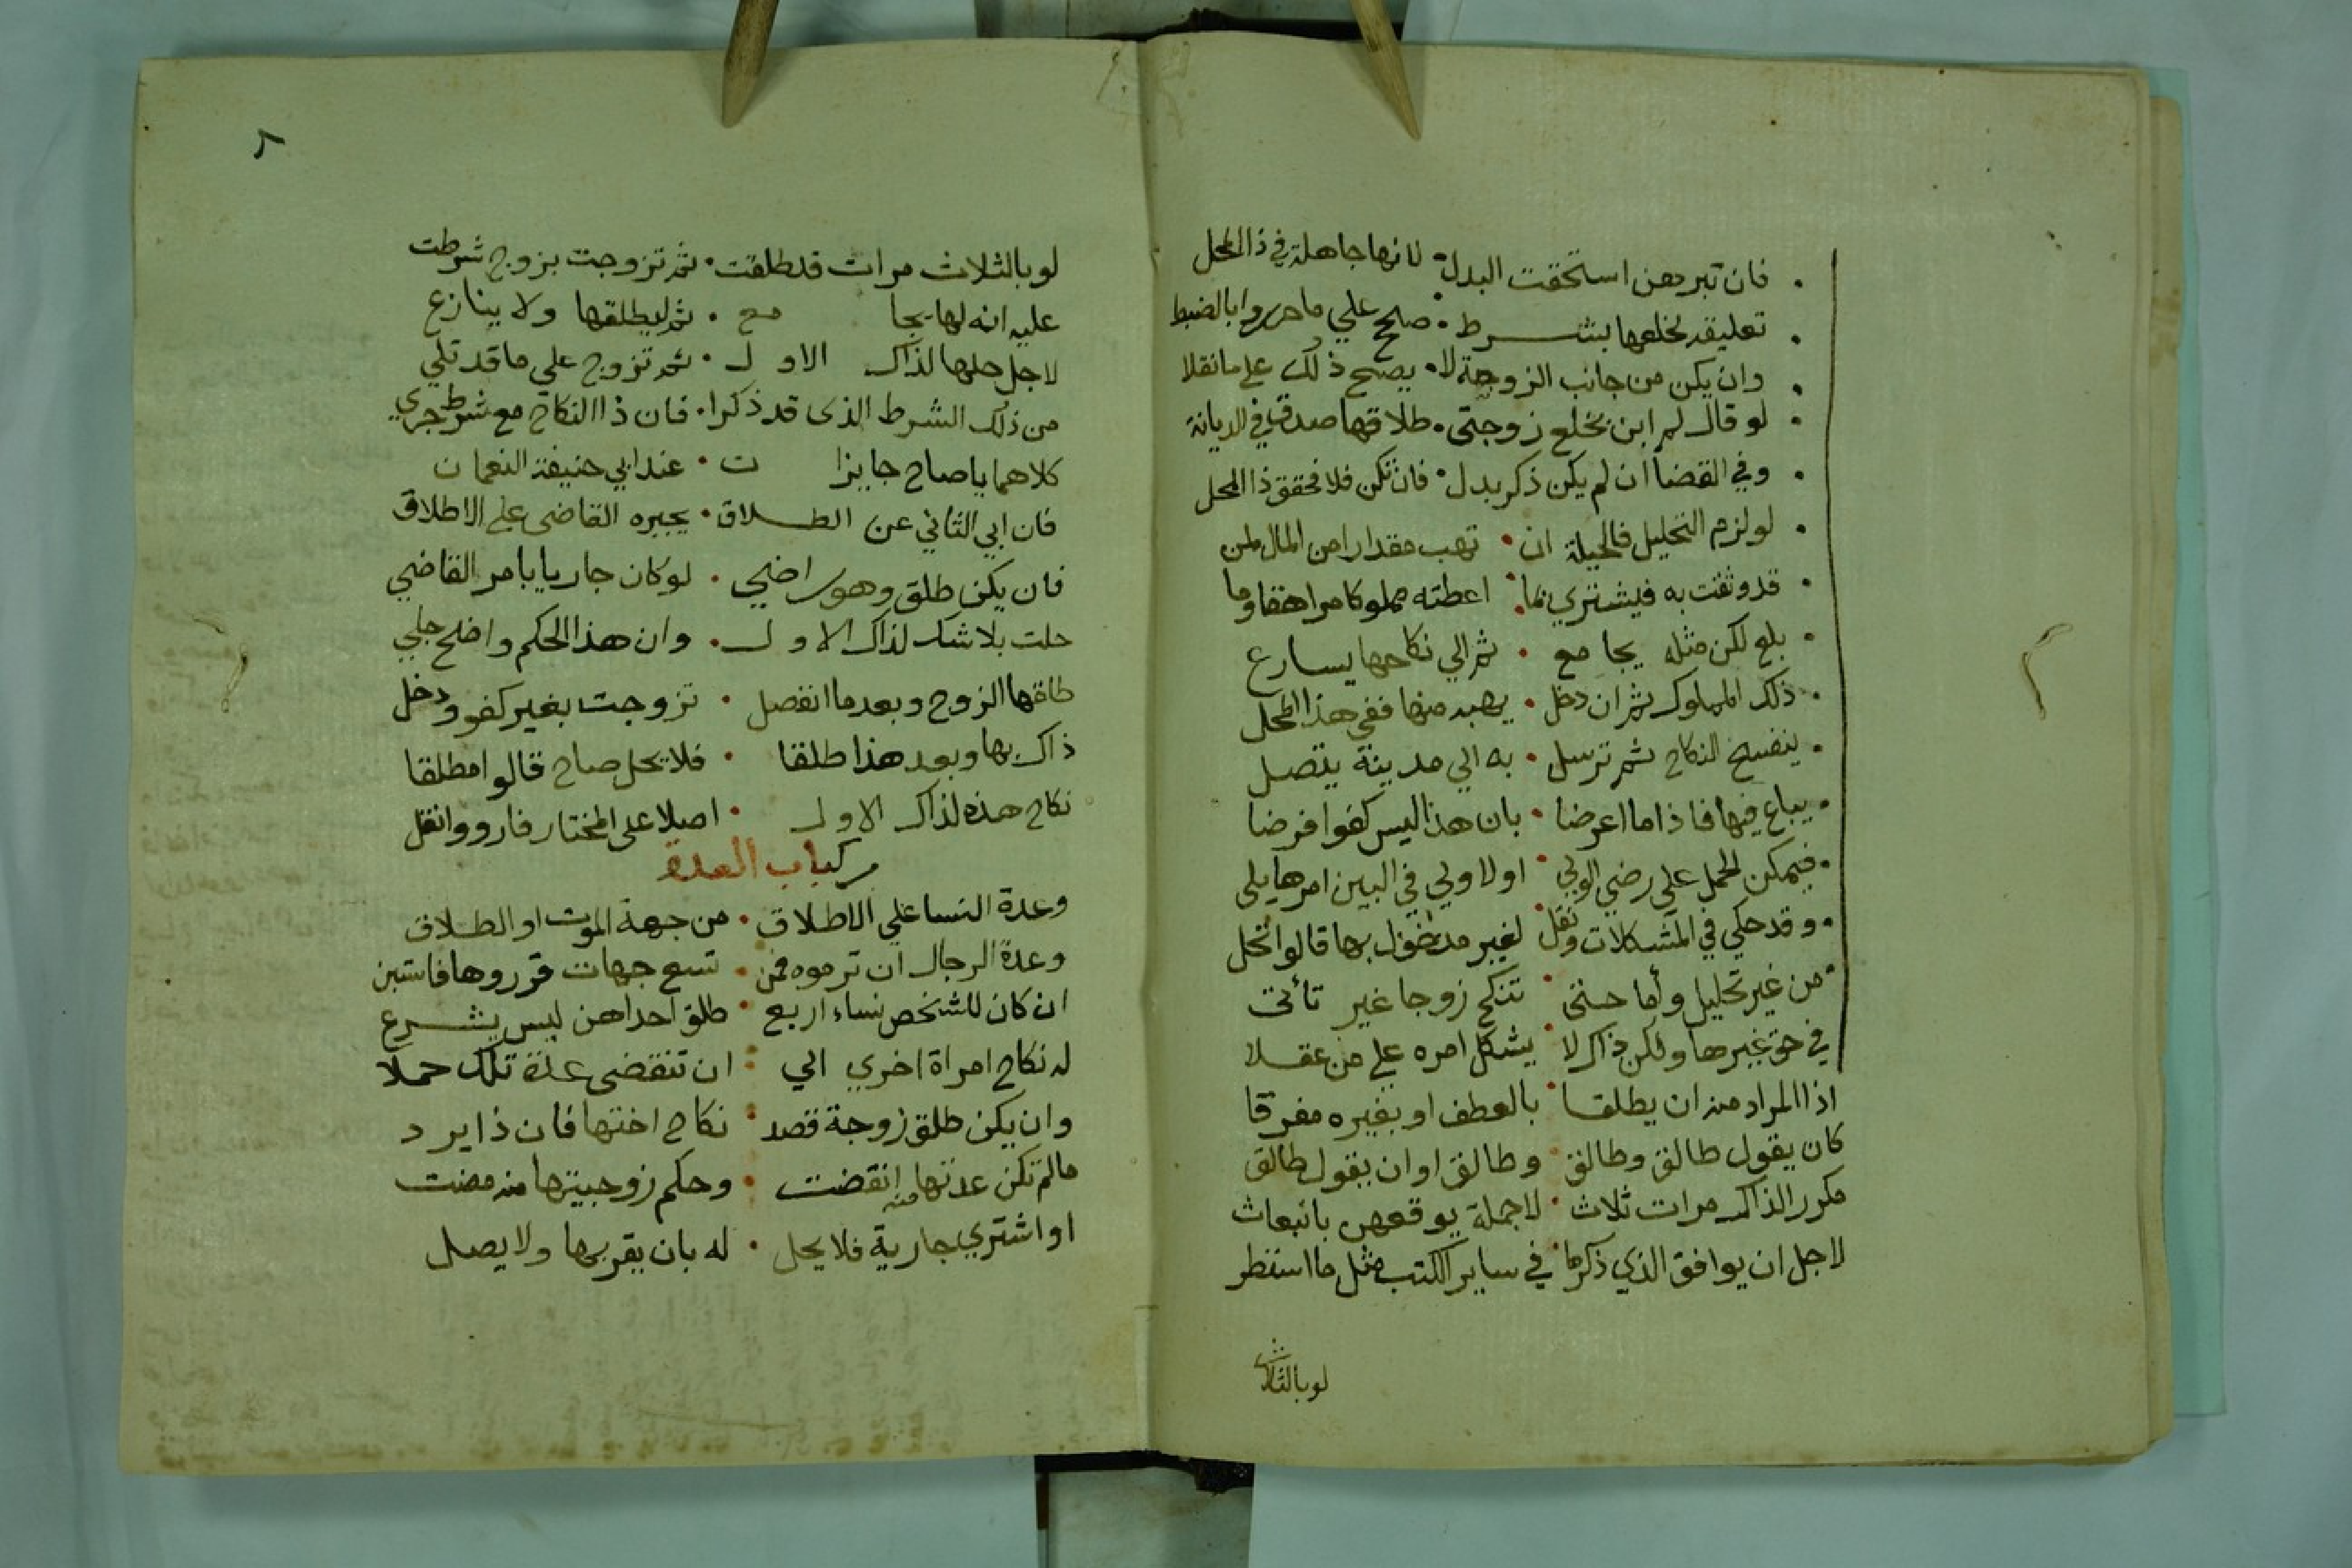 فان تبرهن استحقت البدل لانها جاهلة في ذا المحل
تعليقه لخلعها بشرط صلح علي ما حرروا بالضبط
وان يكن من جانب الزوجة لا يصح ذلك علي ما نقلا
لو قال لم ابن بخلع زوجتي طلاقها صدق في الديانة
وفي القضا ان لم يكن ذكر بدل فان تكن فلا فحقق ذا المحل
لو لزم التحليل فالحيلة ان تهب مقدارا من المال لمن
قد وثقت به فيشتري بما اعطته مملوكا مراهقا وما
بلغ لكن مثله يجامع ثم الي نكاحها يسارع
ذلك المملوك ثم ان دخل يهبه منها ففي هذا المحل
ينفسخ النكاح ثم ترسل به الي مدينة يتصل
يباع فيها فاذا ما اعرضا بان هذا ليس كفوا فرضا
فيمكن الحمل علي رضي الولي اولا ولي في البين امرها يلي
وقد حكي في المشكلات ونقل لغير مدخول بها قالوا تحل
من غير تحليل وأما حتى تنكح زوجا غير تأتى
في حق غيرها ولكن ذاك لا يشكل امره علي من عقلا
اذا المراد منه ان يطلقا بالعطف او بغيره مفرقا
كان يقول طالق وطالق وطالق او ان يقول طالق
مكرر الذاك مرات ثلاث لا جملة يوقعهن بانبعاث
لاجل ان يوافق الذي ذكر في ساير الكتب مثل ما استطر
لو بالثلاث
٨
لو بالثلاث مرات قد طلقت ثم تزوجت بزوج شرطت
عليه انه لها يجامع ثم ليطلقها ولا ينازع
لاجل حلها لذاك الاول ثم تزوج علي ما قد تلي
من ذلك الشرط الذي قد ذكرا فان ذا النكاح مع شرط جري
كلاهما يا صاح جايزان عند ابي حنيفة النعمان
فان ابي الثاني عن الطلاق يجبره القاضي علي الاطلاق
فان يكن طلق وهو راضي لو كان جاريا بامر القاضي
حلت بلا شك لذاك الاول وان هذا الحكم واضح جلي
طلقها الزوج وبعد ما انفصل تزوجت بغير كفو ودخل
ذاك بها وبعد هذا طلقا فلا يحل صاح قالوا مطلقا
نكاح هذه لذاك الاول اصلا علي المختار فارووا نقل
كباب العدة
وعدة النسا علي الاطلاق من جهة الموت او الطلاق
وعدة الرجال ان ترموه فمن تسع جهات قرروها فاستبن
ان كان للشخص نساء اربع طلق احداهن ليس يشرع
له نكاح امراة اخري الي ان تنقضي عدة تلك حملا
وان يكن طلق زوجة قصد نكاح اختها فان ذا يرد
مالم تكن عدتها منه انقضت وحكم زوجيتها منه مضت
او اشتري جارية فلا يحل له بان يقربها ولا يصل